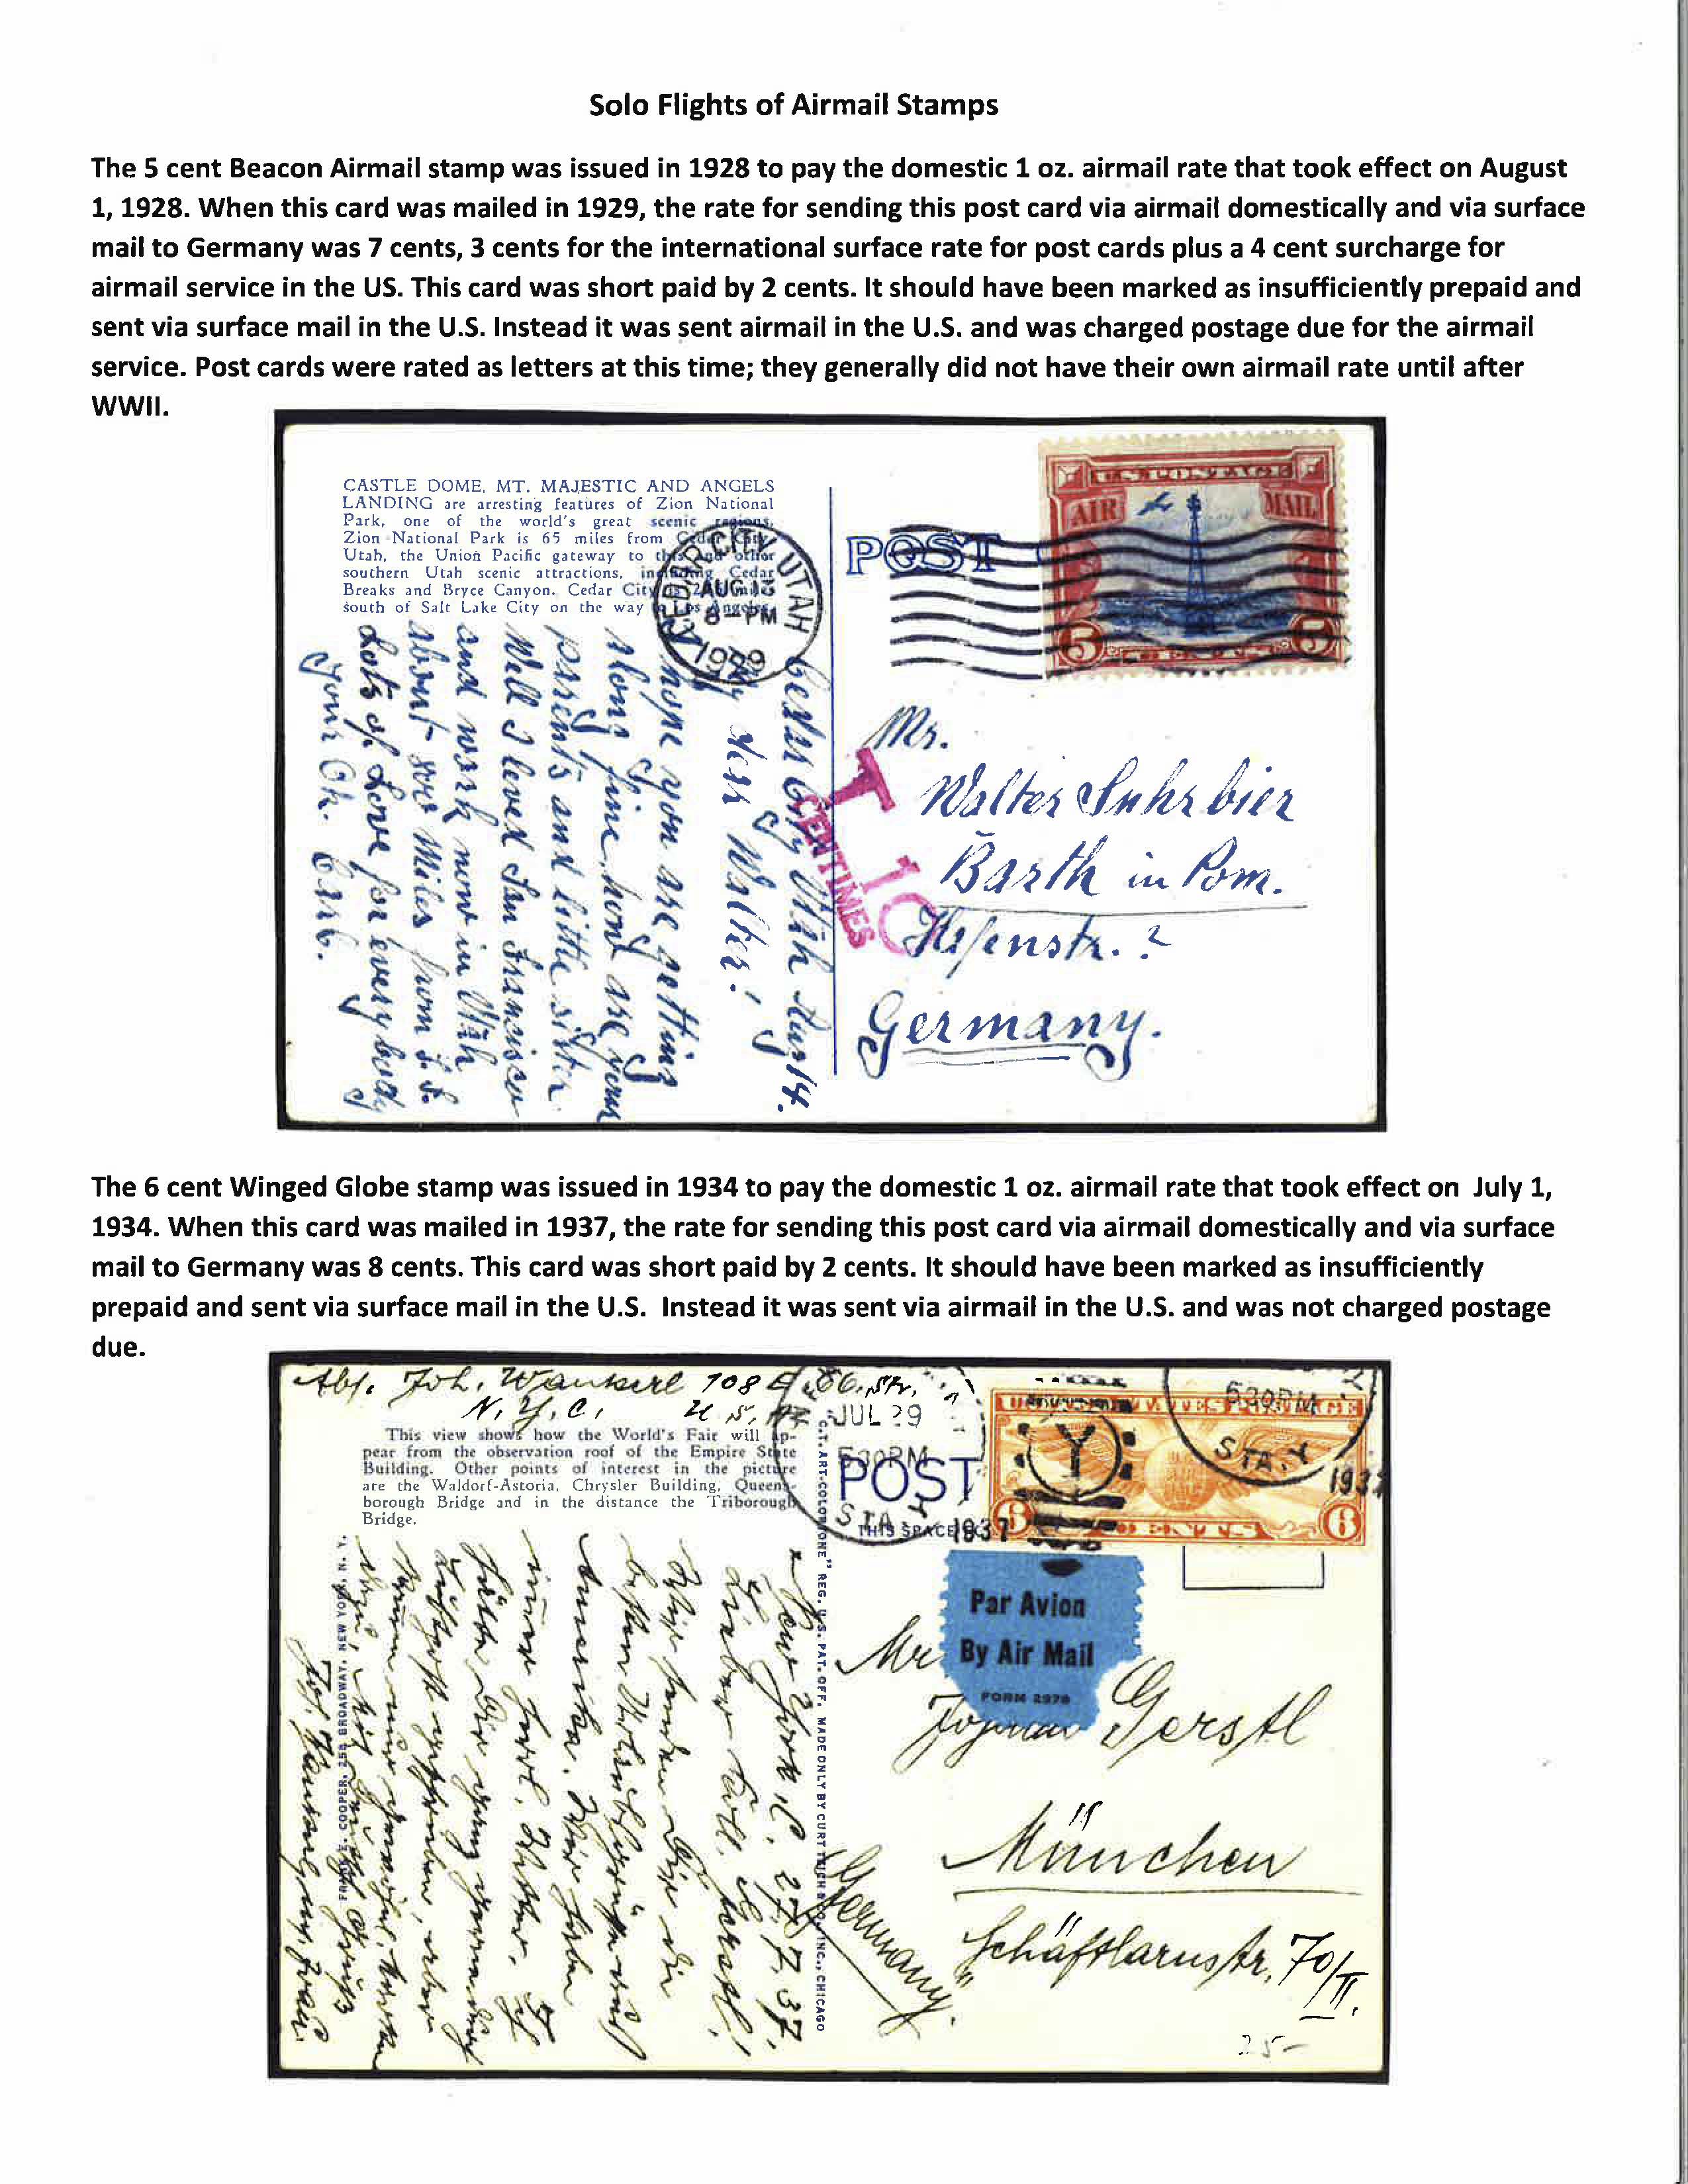 Solo Flights of Airmail Stamps
The 5 cent Beacon Airmail stamp was issued in 1928 to pay the domestic 1 oz. airmail rate that took effect on August
1, 1928. When this card was mailed in 1929, the rate for sending this post card via airmail domestically and via surface
mail to Germany was 7 cents, 3 cents for the international surface rate for post cards plus a 4 cent surcharge for
airmail service in the US. This card was short paid by 2 cents. It should have been marked as insufficiently prepaid and
sent via surface mail in the U.S. Instead it was sent airmail in the U.S. and was charged postage due for the airmail
service. Post cards were rated as letters at this time; they generally did not have their own airmail rate until after
WWII.
CASTLE DOME, MT. MAJESTIC AND ANGELS
LANDING are arresting features of Zion National
Park, one of the world's great scenic regions.
Zion National Park is 65 miles from Cedar City,
Utah, the Union Pacific gateway to this and other
southern Utah scenic attractions, including Cedar
Breaks and Bryce Canyon. Cedar City is miles
south of Salt Lake City on the way to Los Angeles.
CEDAR CITY UTAH
AUG 13
8-PM
1929
POST
U.S. POSTAGE
AIR MAIL
5 CENTS 5
Cedar City Utah Aug 14.
My dear Walter!
hope you are getting
along fine, how are your
parents and little sister.
Well I leved San Francisco
and work now in Utah
about 800 Miles from S.F.
Lots of Love for everybody
Your Ok. Carl.
T 10
CENTIMES
Mr.
Walter Suhrbier
Barth in Pom.
Hafenstr. 2
Germany.
The 6 cent Winged Globe stamp was issued in 1934 to pay the domestic 1 oz. airmail rate that took effect on July 1,
1934. When this card was mailed in 1937, the rate for sending this post card via airmail domestically and via surface
mail to Germany was 8 cents. This card was short paid by 2 cents. It should have been marked as insufficiently
prepaid and sent via surface mail in the U.S. Instead it was sent via airmail in the U.S. and was not charged postage
due.
Abs. Joh. Wankerl 108 E. 86. Str.
N.Y.C. U.S.A.
This view shows how the World's Fair will ap-
pear from the observation roof of the Empire State
Building. Other points of interest in the picture
are the Waldorf-Astoria, Chrysler Building, Queens-
borough Bridge and in the distance the Triborough
Bridge.
JUL 29
530PM
STA. Y
1937
POST
THIS SPACE
UNITED STATES POSTAGE
6 CENTS 6
Y
530PM
STA. Y
1937
Par Avion
By Air Mail
FORM 2978
Mr
Gerstl
München
Schäftlarnstr. 70/II.
Germany.
25-
C.T. ART-COLORTONE" REG. U.S. PAT. OFF. MADE ONLY BY CURT TEICH & CO., INC., CHICAGO
New York, 27.7.37.
COOPER, 258 BROADWAY, NEW YORK, N. Y.